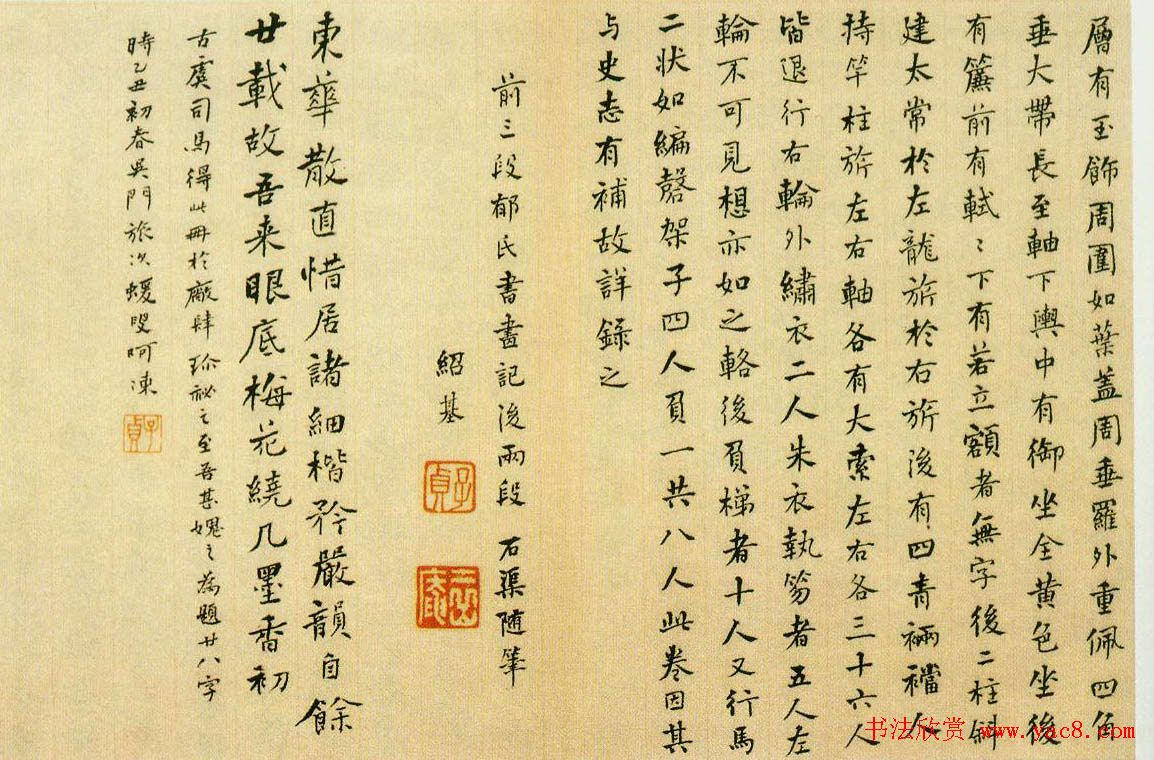 層有玉飾周圍如葉盖周垂羅外重佩四角
垂大帶長至軸下輿中有御坐全黄色坐後
有簾前有軾〻下有若立額者無字後二柱斜
建太常於左龍旂於右旂後有四青裲襠人
持竿柱旂左右軸各有大索左右各三十六人
皆退行右輪外繡衣二人朱衣執笏者五人左
輪不可見想亦如之輅後負梯者十人又行馬
二状如編磬架子四人負一共八人此卷因其
与史志有補故詳錄之
前三段郁氏書畫記後兩段石渠随筆
紹基
子貞
東華散直惜居諸細楷矜嚴韻自餘
廿載故吾来眼底梅花繞几墨香初
古虞司馬得此冊於廠肆珎祕之至吾甚媿之為題廿八字
時乙丑初春吳門旅次蝯叟呵凍
子貞
书法欣赏 www.yac8.com